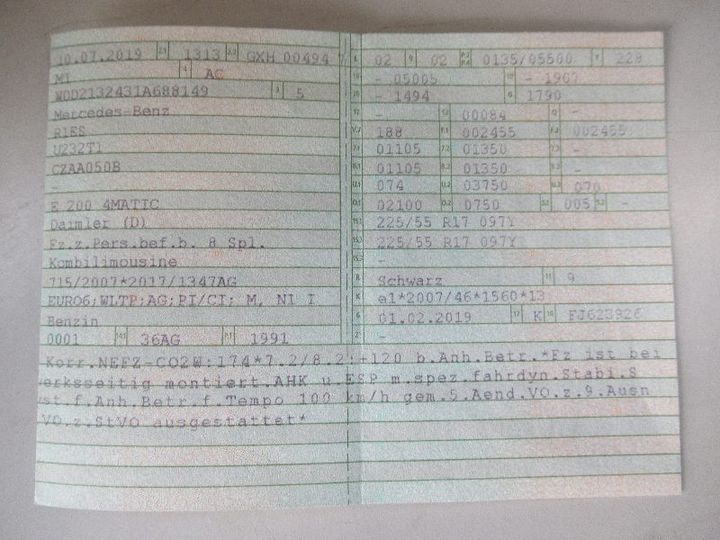 10.07.2019 2.1 1313 2.2 GXH 00494 7
M1 4 AC
WDD2132431A688149 3 5
Mercedes-Benz
R1ES
U232T1
CZAA050B
-
E 200 4MATIC
Daimler (D)
Fz.z.Pers.bef.b. 8 Spl.
Kombilimousine
715/2007*2017/1347AG
EURO6;WLTP;AG;PI/CI; M, N1 I
Benzin
0001 14.1 36AG P.1 1991
L 02 9 02 P.2 P.4 0135/05500 T 228
18 - 05005 19 - 1907
20 - 1494 G 1790
12 - 13 00084 Q -
V.7 188 F.1 002455 F.2 002455
7.1 01105 7.2 01350 7.3 -
8.1 01105 8.2 01350 8.3 -
U.1 074 U.2 03750 U.3 070
O.1 02100 O.2 0750 S.1 005 S.2 -
15.1 225/55 R17 097Y
15.2 225/55 R17 097Y
15.3 -
R Schwarz 11 9
K e1*2007/46*1560*13
6 01.02.2019 17 K 16 FJ623926
21 -
Korr.NEFZ-CO2W:174*7.2/8.2:+120 b.Anh.Betr.*Fz ist bei
erksseitig montiert.AHK u.ESP m.spez.fahrdyn.Stabi.S
st.f.Anh.Betr.f.Tempo 100 km/h gem.5.Aend.VO.z.9.Ausn
VO.z.StVO ausgestattet*